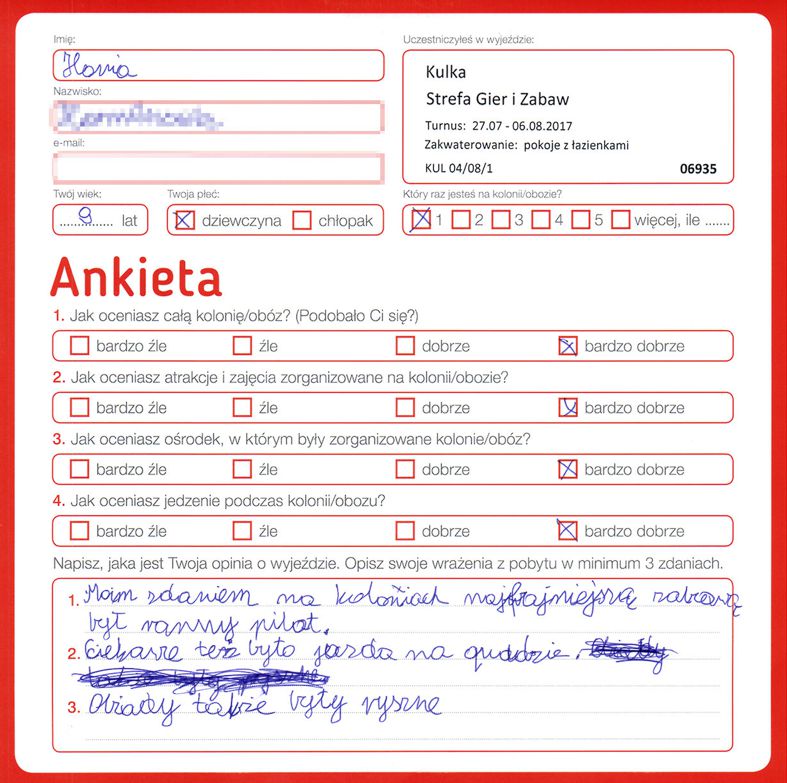 Imię:
Hania
Nazwisko:
e-mail:
Twój wiek:
9 lat
Twoja płeć:
dziewczyna chłopak
Uczestniczyłeś w wyjeździe:
Kulka
Strefa Gier i Zabaw
Turnus: 27.07 - 06.08.2017
Zakwaterowanie: pokoje z łazienkami
KUL 04/08/1 06935
Który raz jesteś na kolonii/obozie?
1 2 3 4 5 więcej, ile .......
Ankieta
1. Jak oceniasz całą kolonię/obóz? (Podobało Ci się?)
bardzo źle źle dobrze bardzo dobrze
2. Jak oceniasz atrakcje i zajęcia zorganizowane na kolonii/obozie?
bardzo źle źle dobrze bardzo dobrze
3. Jak oceniasz ośrodek, w którym były zorganizowane kolonie/obóz?
bardzo źle źle dobrze bardzo dobrze
4. Jak oceniasz jedzenie podczas kolonii/obozu?
bardzo źle źle dobrze bardzo dobrze
Napisz, jaka jest Twoja opinia o wyjeździe. Opisz swoje wrażenia z pobytu w minimum 3 zdaniach.
1. Moim zdaniem na koloniach najfajniejszą zabawą
był ranny pilot.
2. Ciekawe też było jazda na quadzie.
3. Obiady także były pyszne